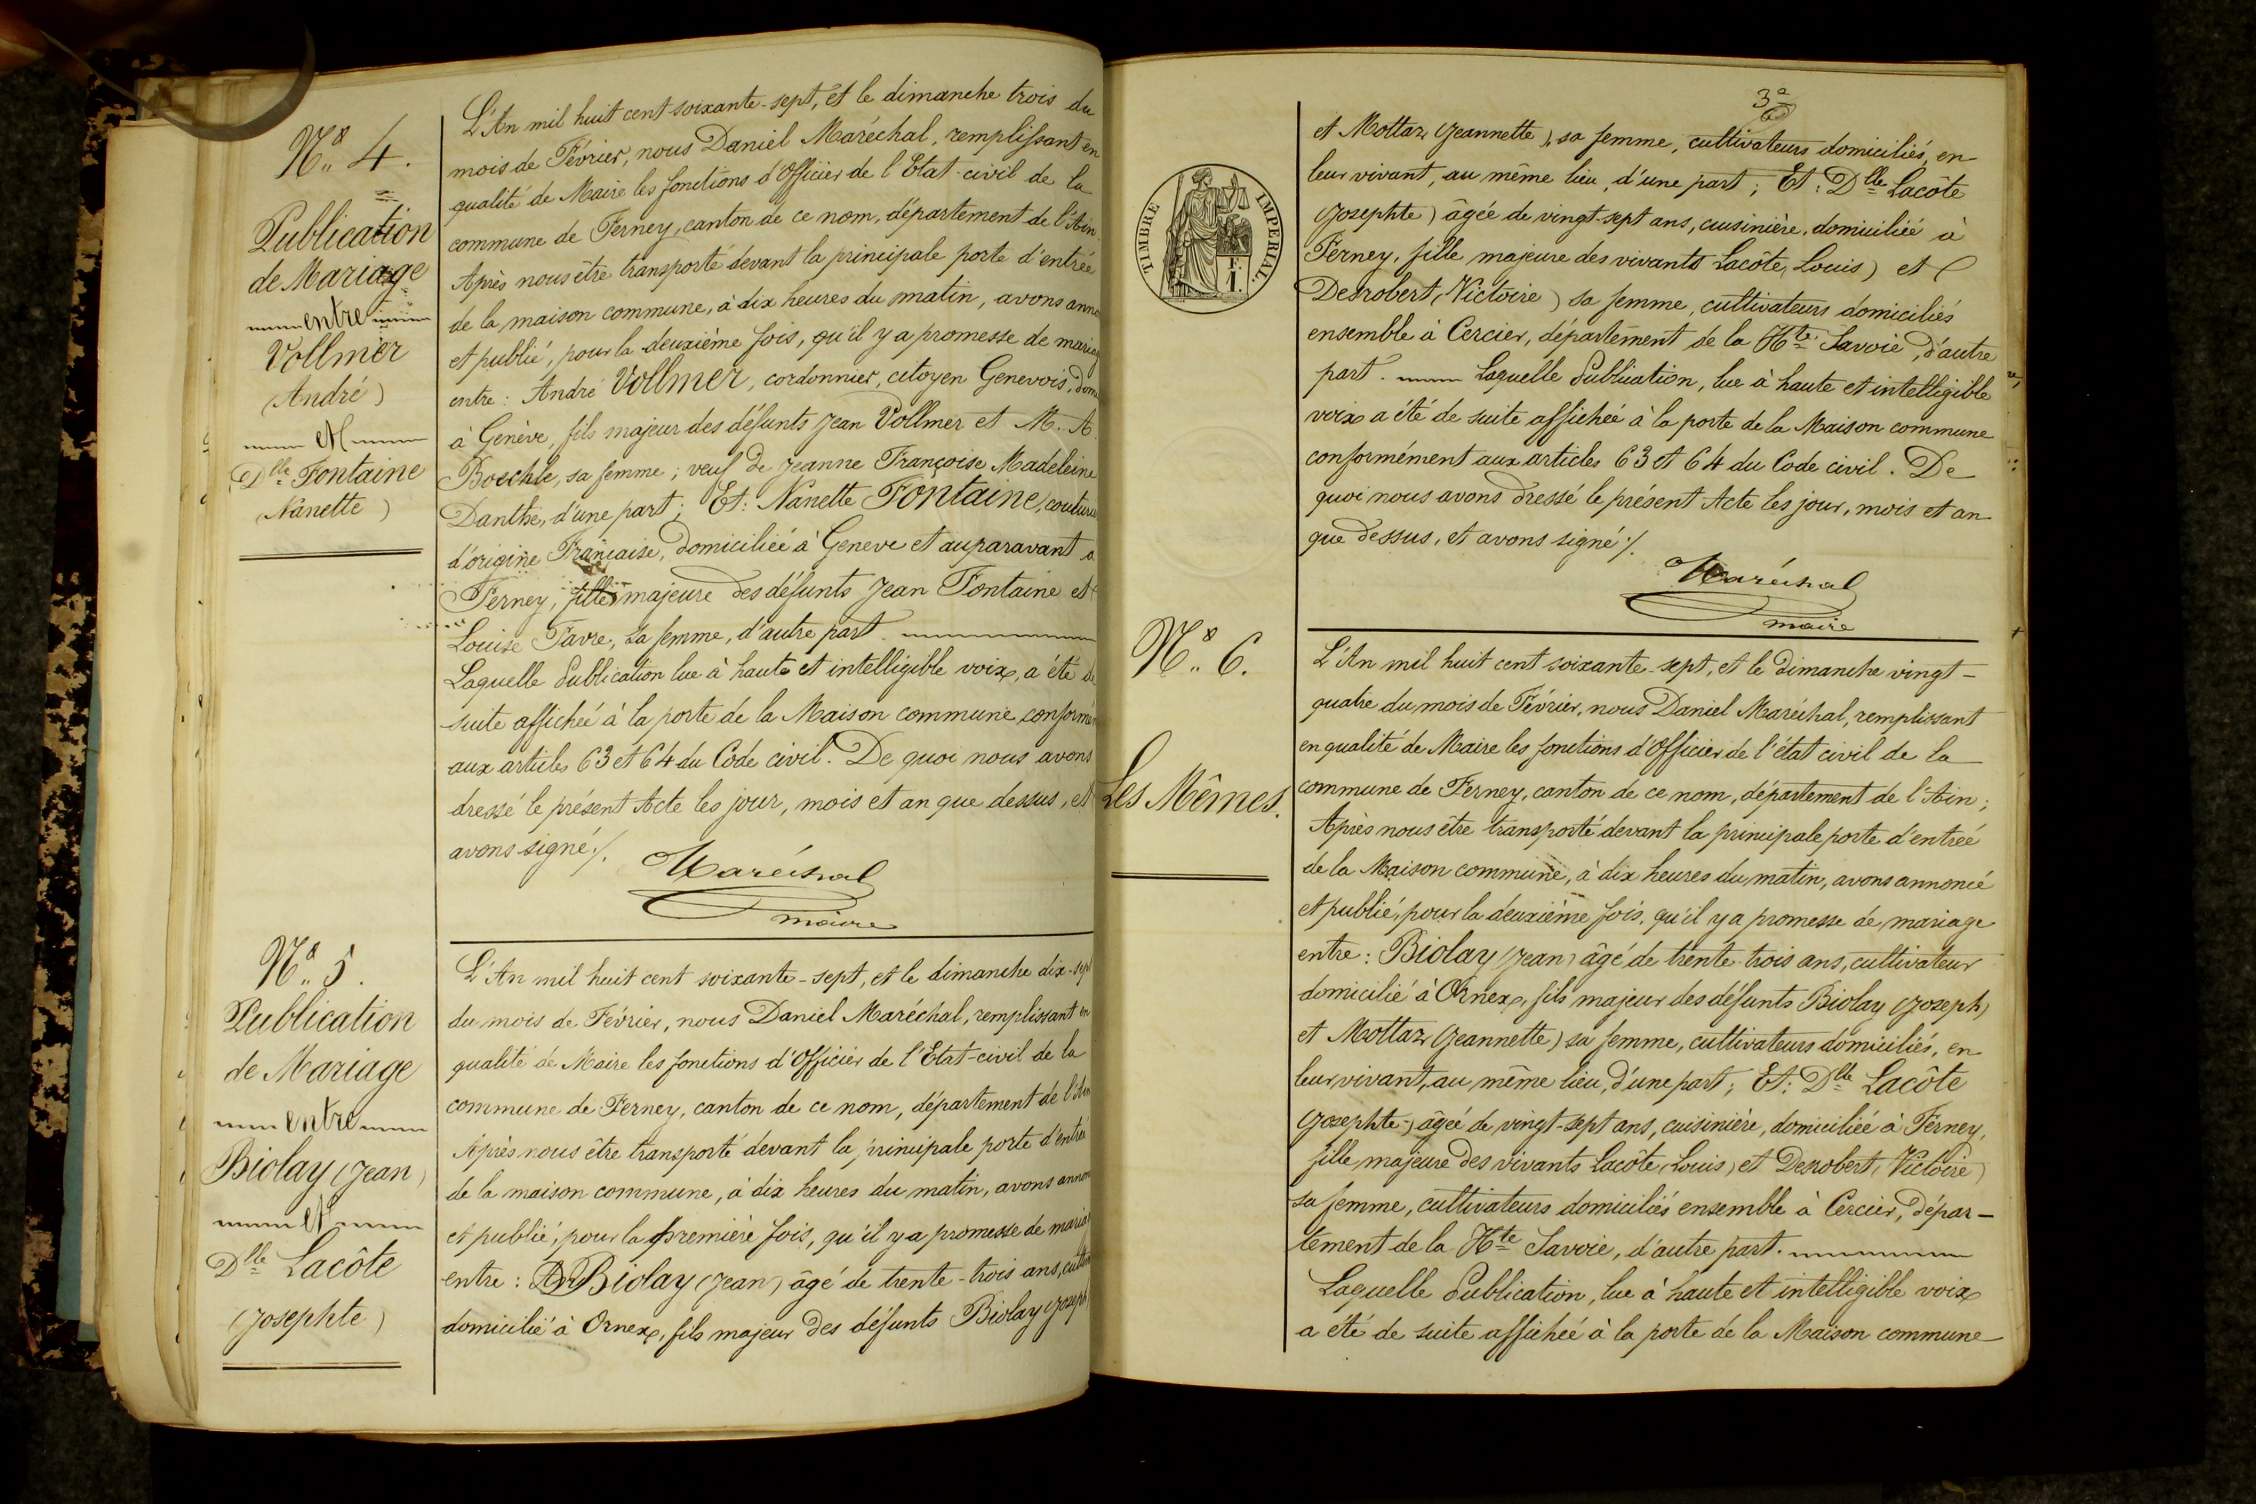 N° 4.
Publication
de Mariage
entre
Vollmer
(André)
et
Dlle Fontaine
(Nanette)
L'An mil huit cent soixante-sept, et le dimanche trois du
mois de Février, nous Daniel Maréchal, remplissant en
qualité de Maire les fonctions d'Officier de l'Etat-civil de la
commune de Ferney, canton de ce nom, département de l'Ain.
Après nous être transporté devant la principale porte d'entrée
de la maison commune, à dix heures du matin, avons anno
et publié, pour la deuxième fois, qu'il y a promesse de mariag
entre : André Vollmer, cordonnier, citoyen Genevois, dom
à Genève, fils majeur des défunts Jean Vollmer et M. A.
Boechle, sa femme ; veuf de Jeanne Françoise Madeleine
Danthe, d'une part ; Et : Nanette Fontaine, couturiè
d'origine Française, domiciliée à Genève et auparavant à
Ferney, fille majeure des défunts Jean Fontaine et
Louise Favre, sa femme, d'autre part.
Laquelle Publication lue à haute et intelligible voix, a été de
suite affichée à la porte de la Maison commune conformém
aux articles 63 et 64 du Code civil. De quoi nous avons
dressé le présent Acte les jour, mois et an que dessus, et
avons signé ./.
Maréchal
maire
N° 5.
Publication
de Mariage
entre
Biolay (Jean)
et
Dlle Lacôte
(Josephte)
L'An mil huit cent soixante-sept, et le dimanche dix-sept
du mois de Février, nous Daniel Maréchal, remplissant en
qualité de Maire les fonctions d'Officier de l'Etat-civil de la
commune de Ferney, canton de ce nom, département de l'Ain
Après nous être transporté devant la principale porte d'entrée
de la maison commune, à dix heures du matin, avons annon
et publié, pour la première fois, qu'il y a promesse de maria
entre : Biolay (Jean) âgé de trente-trois ans, cultiv
domicilié à Ornex, fils majeur des défunts Biolay (Joseph)
3e
TIMBRE IMPERIAL.
F.
1.
et Mottaz (Jeannette), sa femme, cultivateurs domiciliés, en
leur vivant, au même lieu, d'une part ; Et : Dlle Lacôte
(Josephte) âgée de vingt-sept ans, cuisinière, domiciliée à
Ferney, fille majeure des vivants Lacôte (Louis) et
Derobert (Victoire) sa femme, cultivateurs domiciliés
ensemble à Cercier, département de la Hte Savoie, d'autre
part. Laquelle Publication, lue à haute et intelligible
voix a été de suite affichée à la porte de la Maison commune
conformément aux articles 63 et 64 du Code civil. De
quoi nous avons dressé le présent Acte les jour, mois et an
que dessus, et avons signé ./.
Maréchal
maire
N° 6.
Les Mêmes.
L'An mil huit cent soixante-sept, et le dimanche vingt-
quatre du mois de Février, nous Daniel Maréchal, remplissant
en qualité de Maire les fonctions d'Officier de l'état civil de la
commune de Ferney, canton de ce nom, département de l'Ain ;
Après nous être transporté devant la principale porte d'entrée
de la Maison commune, à dix heures du matin, avons annoncé
et publié, pour la deuxième fois, qu'il y a promesse de mariage
entre : Biolay (Jean) âgé de trente-trois ans, cultivateur
domicilié à Ornex, fils majeur des défunts Biolay (Joseph)
et Mottaz (Jeannette) sa femme, cultivateurs domiciliés, en
leur vivant, au même lieu, d'une part ; Et : Dlle Lacôte
(Josephte) âgée de vingt-sept ans, cuisinière, domiciliée à Ferney,
fille majeure des vivants Lacôte (Louis) et Derobert (Victoire)
sa femme, cultivateurs domiciliés ensemble à Cercier, dépar-
tement de la Hte Savoie, d'autre part.
Laquelle Publication, lue à haute et intelligible voix
a été de suite affichée à la porte de la Maison commune